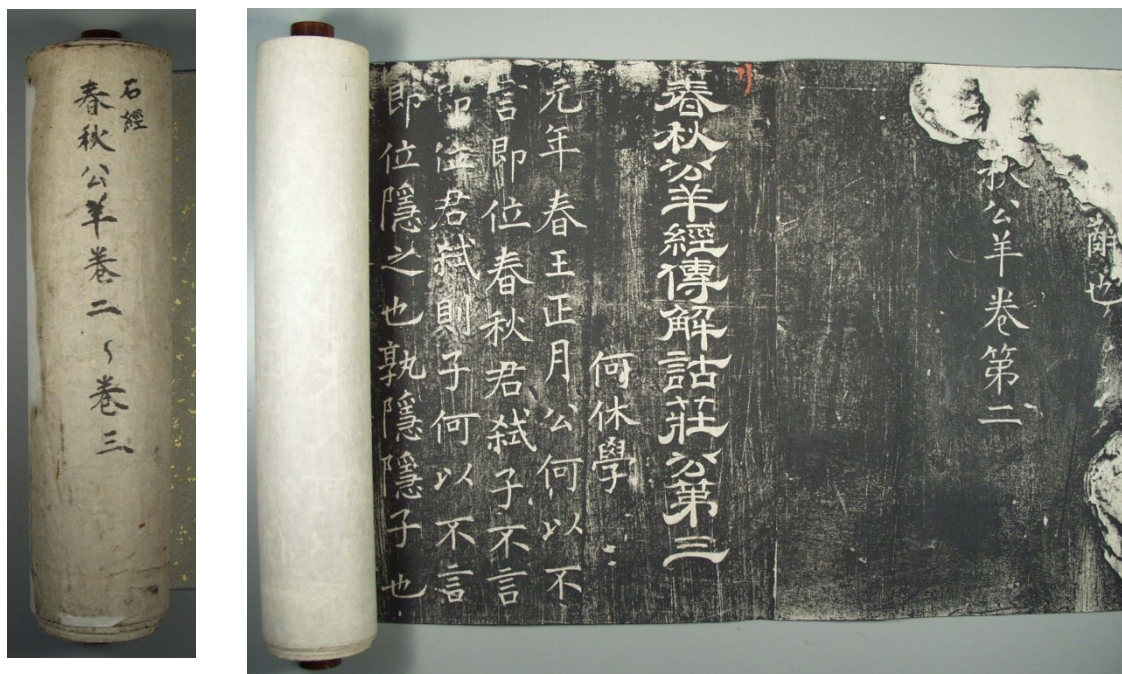 石經
春秋公羊卷二〜卷三
也
秋公羊卷第二
春秋公羊經傳解詁莊公第三
何休學
元年春王正月公何以不
言即位春秋君弒子不言
即位君弒則子何以不言
即位隱之也孰隱隱子也